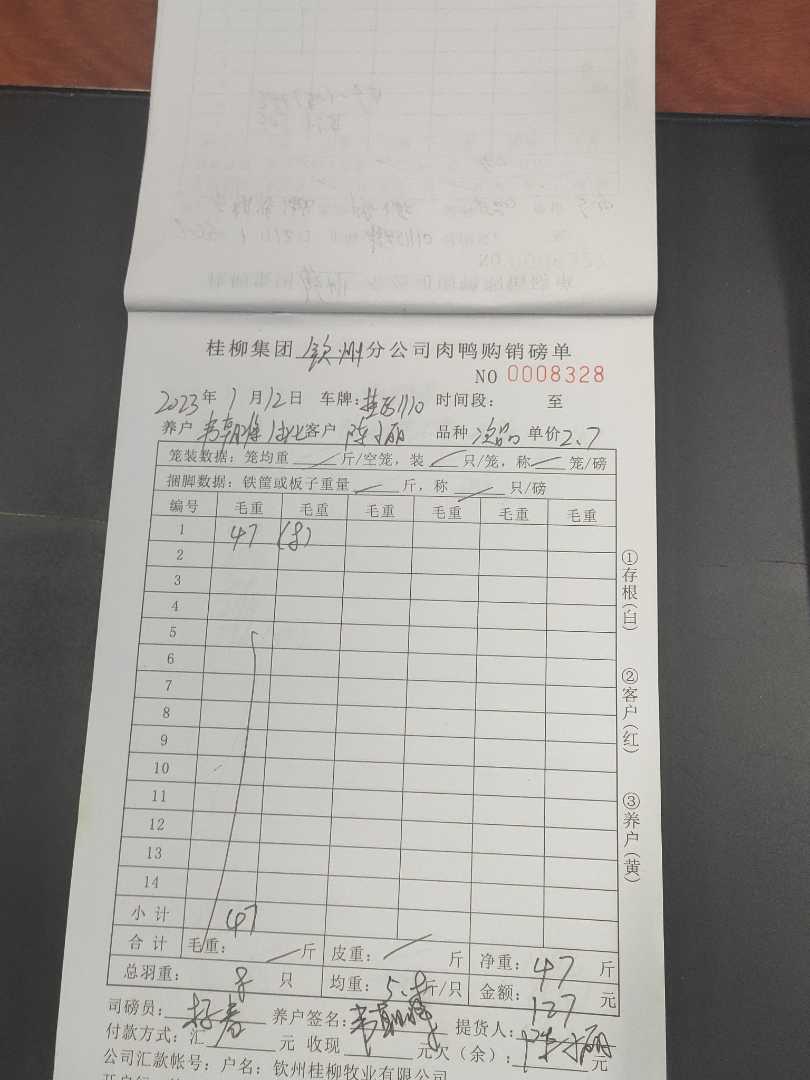 桂柳集团 钦州 分公司肉鸭购销磅单
NO 0008328
2023年 1月12日 车牌: 时间段: 至
养户 客户 陈小丽 品种 次品 单价 2.7
笼装数据: 笼均重 斤/空笼, 装 只/笼, 称 笼/磅
捆脚数据: 铁筐或板子重量 斤, 称 只/磅
编号 毛重 毛重 毛重 毛重 毛重 毛重
1 47 (8)
2
3
4
5
6
7
8
9
10
11
12
13
14
小计 47
合计 毛重: 斤 皮重: 斤 净重: 47 斤
总羽重: 8 只 均重: 5.8 斤/只 金额: 127 元
司磅员: 养户签名: 提货人: 陈小丽
付款方式: 汇 元 收现 元欠(余): 元
公司汇款帐号: 户名: 钦州桂柳牧业有限公司
①存根(白)
②客户(红)
③养户(黄)